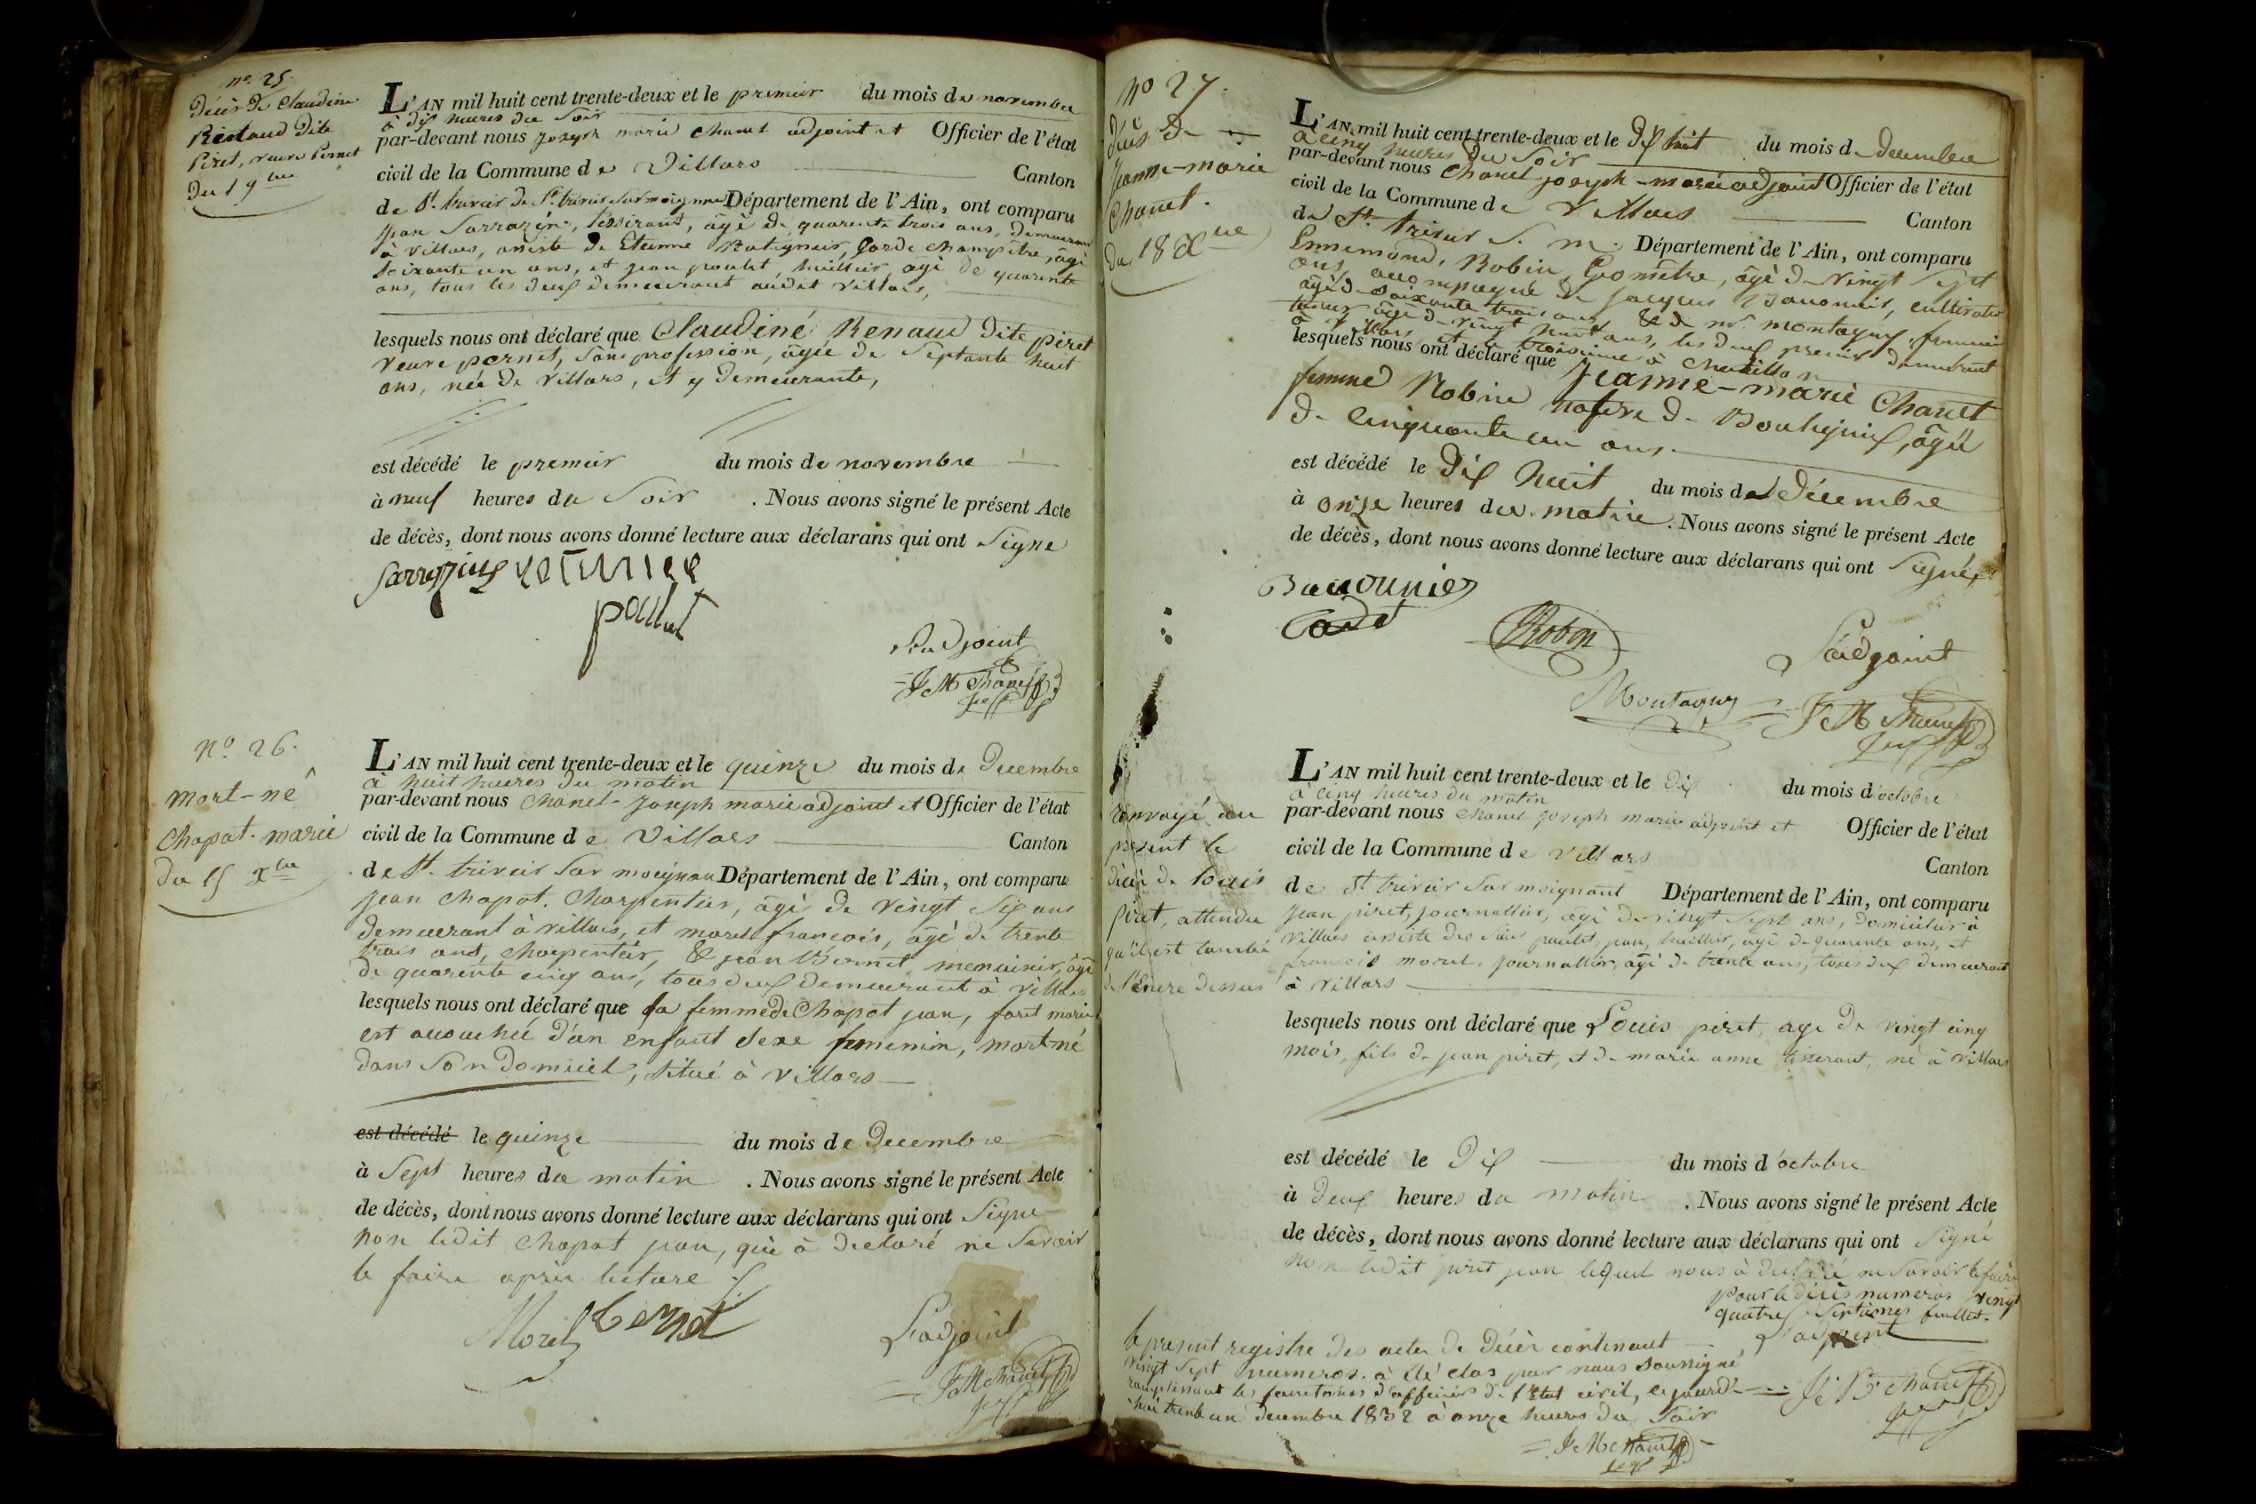 nº 25.
Décès de Claudine
Renaud dite
Piret, veuve Pernet
du 1 9bre
L'AN mil huit cent trente-deux et le premier du mois de novembre
à dix heures du soir
par-devant nous joseph marie chanel adjoint et Officier de l'état
civil de la Commune de Villars Canton
de St. trivier de St. trivier sur moignans Département de l'Ain, ont comparu
jean Sarrazin, tisserant, âgé de quarente trois ans, demeurant
à villars, assisté de Etienne Ratignier, garde champêtre, âgé
soixante un ans, et jean poulet, huillier, âgé de quarente
ans, tous les deux demeurant audit villars,
lesquels nous ont déclaré que Claudine Renaud dite piret
veuve pernet, sans profession, âgée de septante huit
ans, née de villars, et y demeurante,
est décédé le premier du mois de novembre
à neuf heures du soir . Nous avons signé le présent Acte
de décès, dont nous avons donné lecture aux déclarans qui ont signé
Sarrazin
poulet
L'adjoint
J M Chanel
nº 26.
mort-né
Chapot. marie
du 15 xbre
L'AN mil huit cent trente-deux et le quinze du mois de Decembre
à huit heures du matin
par-devant nous chanel joseph marie adjoint et Officier de l'état
civil de la Commune de Villars Canton
de St. trivier sur moignan Département de l'Ain, ont comparu
jean chapot, charpentier, âgé de vingt six ans
demeurant à villars, et morel françois, âgé de trente
trois ans, charpentier, & jean Bernet, menuisier, âgé
de quarente cinq ans, tous deux demeurant à villars
lesquels nous ont déclaré que la femme de Chapot jean, foret marie
est accouchée d'un enfant sexe feminin, mort né
dans son domicile, situé à villars
est décédé le quinze du mois de Decembre
à sept heures du matin . Nous avons signé le présent Acte
de décès, dont nous avons donné lecture aux déclarans qui ont signé
non ledit chapot jean, qui à declaré ne savoir
le faire après lecture
Morel Bernet
L'adjoint
J M Chanel
nº 27.
Décès de
jeanne-marie
Chanel.
du 18 Xbre
L'AN mil huit cent trente-deux et le dix huit du mois de decembre
à cinq heures du soir
par-devant nous Chanel joseph-marie adjoint Officier de l'état
civil de la Commune de Villars Canton
de St. trivier S. m. Département de l'Ain, ont comparu
Ennemond Robin, Géomètre, âgé de vingt sept
ans, accompagné de jacques Baconnier, cultivateur
âgé de soixante trois ans, & de mr. montagny,
âgé de vingt huit ans, les deux premiers demeurant
à villars et le troisieme à Chatillon
lesquels nous ont déclaré que Jeanne-marie Chanel
femme Robin native de Bouligneux, âgée
de Cinquante un ans.
est décédé le dix huit du mois de décembre
à onze heures du matin . Nous avons signé le présent Acte
de décès, dont nous avons donné lecture aux déclarans qui ont signé
Baconnier
Cadet
Robin
L'adjoint
Montagny
J M Chanel
renvoyé au
présent le
décès de Louis
piret, attendu
qu'il est tombé
de l'encre dessus
L'AN mil huit cent trente-deux et le dix du mois d'octobre
à cinq heures du matin
par-devant nous chanel joseph marie adjoint et Officier de l'état
civil de la Commune de villars Canton
de St trivier sur moignant Département de l'Ain, ont comparu
jean piret, journallier, âgé de vingt sept ans, domicilié à
villars assisté des sieurs poulet, jean, huillier, âgé de quarente ans, et
françois morel, journallier, âgé de trente ans, tous deux demeurant
à villars
lesquels nous ont déclaré que Louis piret, age de vingt cinq
mois, fils de jean piret, et de marie anne, né à villars
est décédé le dix du mois d'octobre
à deux heures du matin . Nous avons signé le présent Acte
de décès, dont nous avons donné lecture aux déclarans qui ont signé
non ledit piret jean lequel nous à declaré ne savoir le faire
pour le décès numeros vingt
quatre septieme feuillet.
L'adjoint
J M Chanel
le present registre des actes de Décès contenant
vingt sept numeros à été clos par nous soussigné
remplissant les fonctions d'officier de l'état civil, cejourd'
hui trente un decembre 1832 à onze heures du soir
J M Chanel